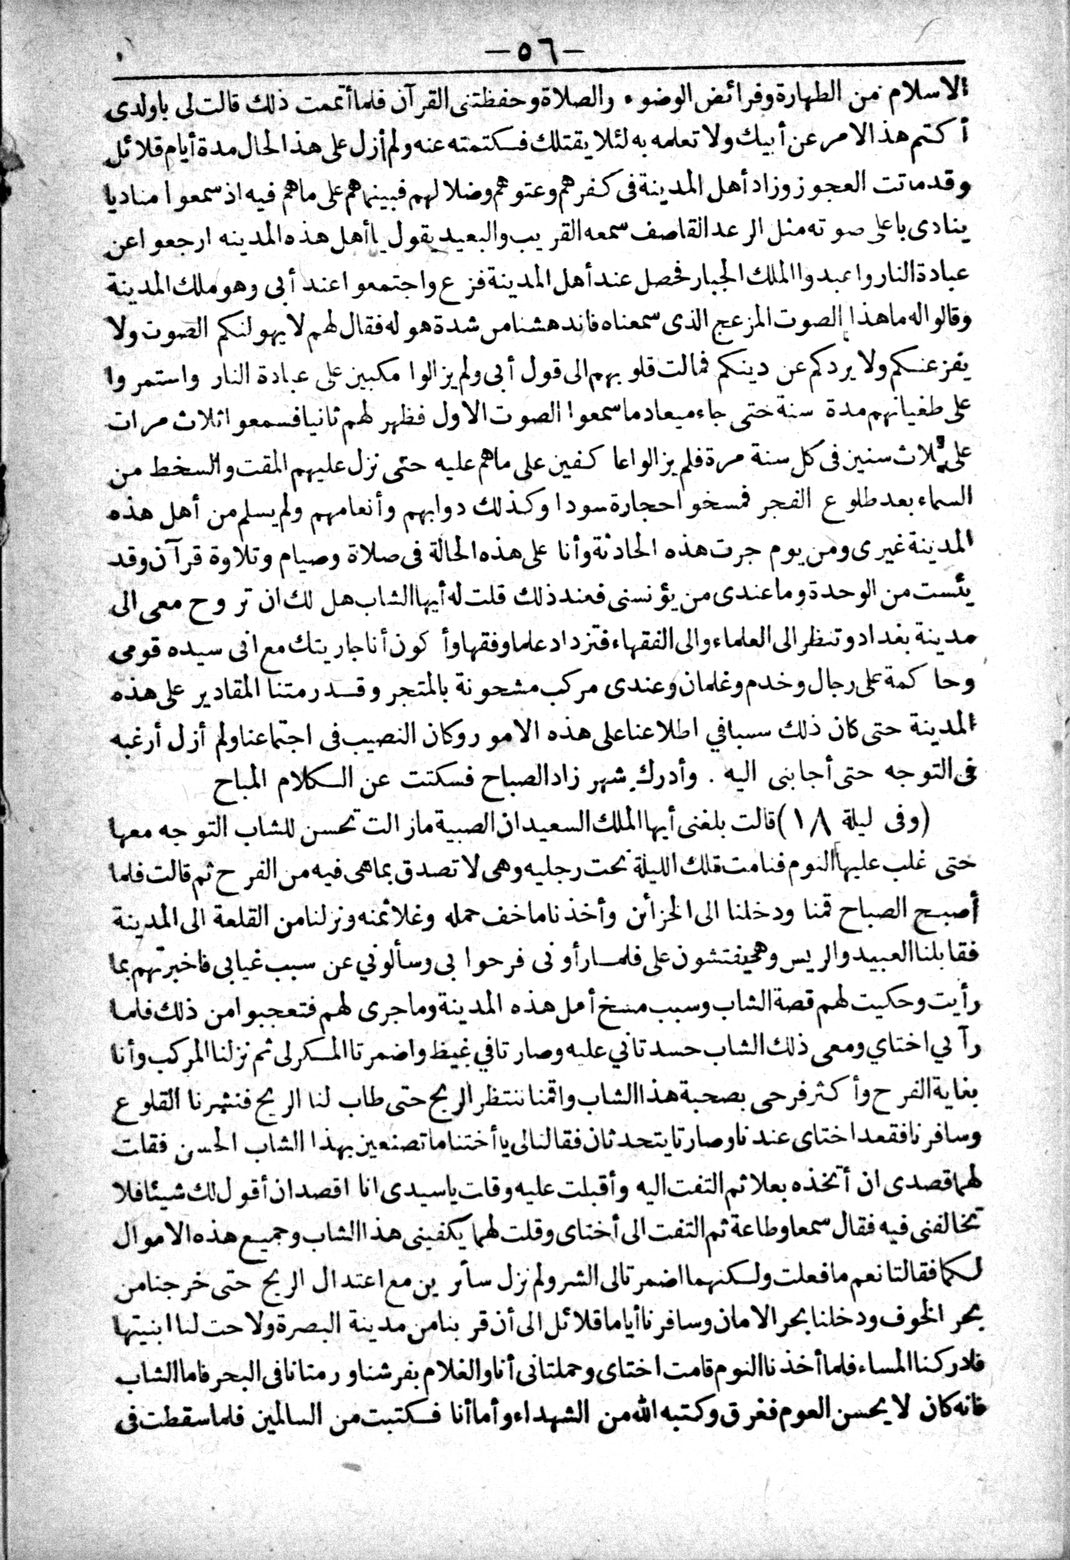 -٥٦-
الاسلام من الطهارة وفرائض الوضوء والصلاة وحفظتنى القرآن فلما أتممت ذلك قالت لى ياولدى
أكتم هذا الامر عن أبيك ولا تعلمه به لئلا يقتلك فكتمته عنه ولم أزل على هذا الحال مدة أيام قلائل
وقد ماتت العجوز وزاد أهل المدينة فى كفرهم وعتوهم وضلالهم فبينما هم على ما هم فيه اذ سمعوا مناديا
ينادى باعلى صوته مثل الرعد القاصف سمعه القريب والبعيد يقول يا أهل هذه المدينه ارجعوا عن
عبادة النار واعبدوا الملك الجبار فحصل عند أهل المدينة فزع واجتمعوا عند أبى وهو ملك المدينة
وقالوا له ما هذا الصوت المزعج الذى سمعناه فاندهشنا من شدة هوله فقال لهم لا يهولنكم الصوت ولا
يفزعنكم ولا يردكم عن دينكم فمالت قلوبهم الى قول أبى ولم يزالوا مكبين على عبادة النار واستمروا
على طغيانهم مدة سنة حتى جاء ميعاد ما سمعوا الصوت الاول فظهر لهم ثانيا فسمعوا ثلاث مرات
على ثلاث سنين فى كل سنة مرة فلم يزالوا عاكفين على ما هم عليه حتى نزل عليهم المقت والسخط من
السماء بعد طلوع الفجر فمسخوا حجارة سودا وكذلك دوابهم وأنعامهم ولم يسلم من أهل هذه
المدينة غيرى ومن يوم جرت هذه الحادثة وأنا على هذه الحالة فى صلاة وصيام وتلاوة قرآن وقد
يئست من الوحدة وما عندى من يؤنسنى فعند ذلك قلت له أيها الشاب هل لك ان تروح معى الى
مدينة بغداد وتنظر الى العلماء والى الفقهاء فتزداد علما وفقها وأكون أنا جاريتك مع انى سيده قومى
وحاكمة على رجال وخدم وغلمان وعندى مركب مشحونة بالمتجر وقد رمتنا المقادير على هذه
المدينة حتى كان ذلك سببا في اطلاعنا على هذه الامور وكان النصيب فى اجتماعنا ولم أزل أرغبه
فى التوجه حتى أجابنى اليه . وأدرك شهر زاد الصباح فسكتت عن الكلام المباح
(وفى ليلة ١٨) قالت بلغنى أيها الملك السعيد ان الصبية مازالت تحسن للشاب التوجه معها
حتى غلب عليها النوم فنامت تلك الليلة تحت رجليه وهى لا تصدق بما هى فيه من الفرح ثم قالت فلما
أصبح الصباح قمنا ودخلنا الى الخزائن وأخذنا ما خف حمله وغلا ثمنه ونزلنا من القلعة الى المدينة
فقابلنا العبيد والريس وهم يفتشون على فلما رأونى فرحوا بى وسألوني عن سبب غيابى فاخبرتهم بما
رأيت وحكيت لهم قصة الشاب وسبب مسخ أهل هذه المدينة وما جرى لهم فتعجبوا من ذلك فلما
رآنى اختاي ومعى ذلك الشاب حسدتاني عليه وصارتا في غيظ واضمرتا المكر لى ثم نزلنا المركب وأنا
بغاية الفرح وأكثر فرحى بصحبة هذا الشاب واقمنا ننتظر الريح حتى طاب لنا الريح فنشرنا القلوع
وسافرنا فقعدا ختاى عندنا وصارتا يتحدثان فقالتا لى يا أختنا ما تصنعين بهذا الشاب الحسن فقلت
لهما قصدى ان أتخذه بعلا ثم التفت اليه وأقبلت عليه وقلت يا سيدى انا اقصد ان أقول لك شيئا فلا
تخالفنى فيه فقال سمعا وطاعة ثم التفت الى أختاى وقلت لهما يكفينى هذا الشاب وجميع هذه الاموال
لكما فقالتا نعم ما فعلت ولكنهما اضمرتا لى الشر ولم نزل سائرين مع اعتدال الريح حتى خرجنا من
بحر الخوف ودخلنا بحر الامان وسافرنا أياما قلائل الى أن قربنا من مدينة البصرة ولاحت لنا ابنيتها
فادركنا المساء فلما أخذنا النوم قامت اختاى وحملتانى أنا والغلام بفرشنا ورمتانا فى البحر فاما الشاب
فانه كان لا يحسن العوم فغرق وكتبه الله من الشهداء وأما أنا فكتبت من السالمين فلما سقطت فى